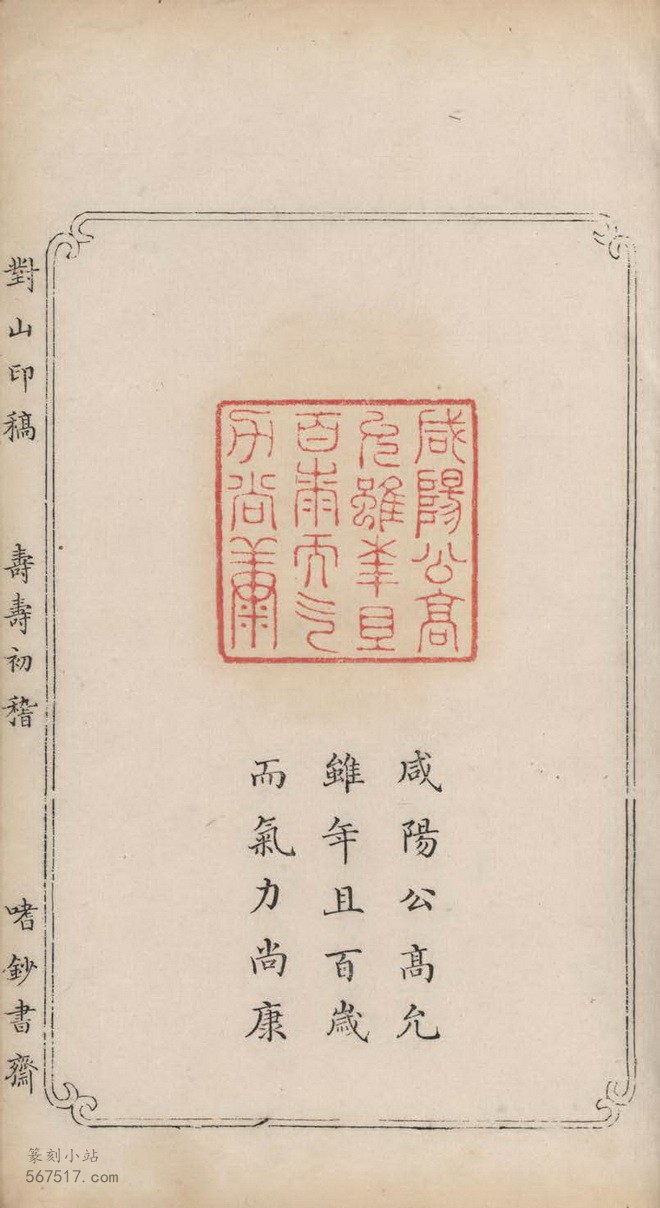 咸陽公髙
允雖年且
百歲而气
力尚康
咸陽公髙允
雖年且百歲
而氣力尚康
對山印稿 壽壽初稽 嗜鈔書齋
篆刻小站
567517.com